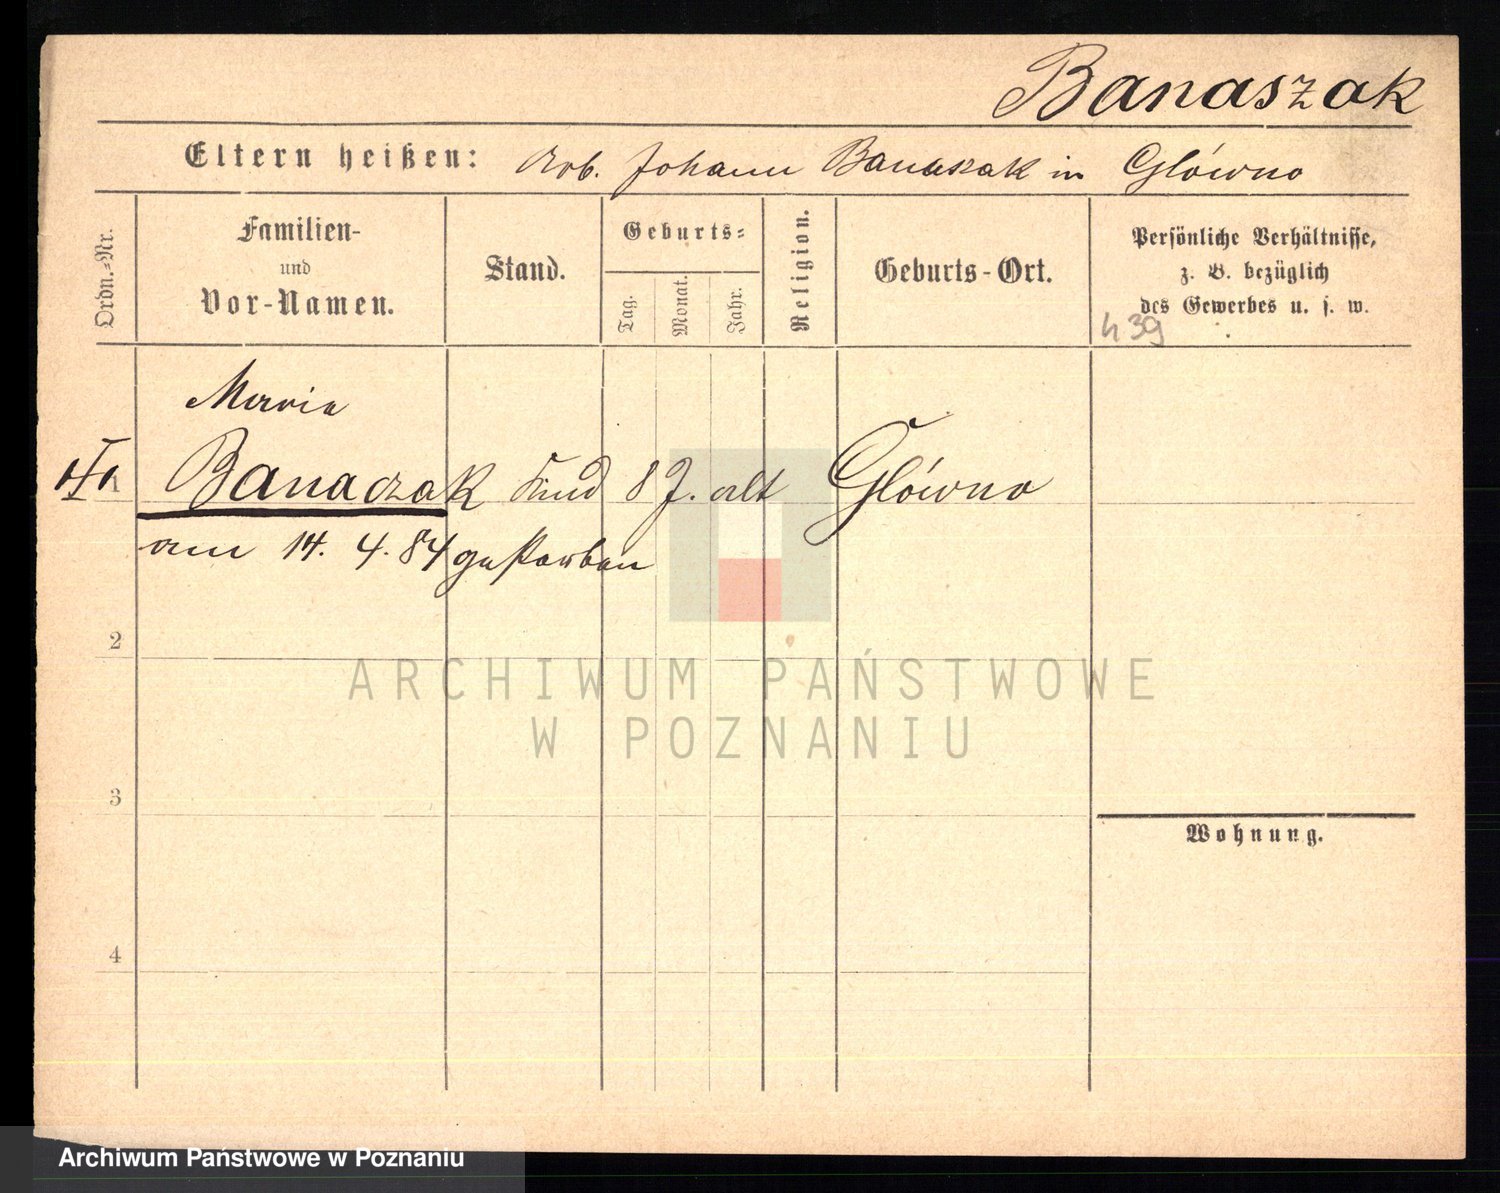 Banaszak
Eltern heißen: Arb. Johann Banaszak in Główno
Ordn.-Nr.
Familien-
und
Vor-Namen.
Stand.
Geburts-
Tag.
Monat.
Jahr.
Religion.
Geburts-Ort.
Persönliche Verhältnisse,
z. B. bezüglich
des Gewerbes u. s. w.
439
Maria
1 Banaczak Kind 8 J. alt Główno
am 14. 4. 84 gestorben
2
3
4
Wohnung.
ARCHIWUM PAŃSTWOWE
W POZNANIU
Archiwum Państwowe w Poznaniu